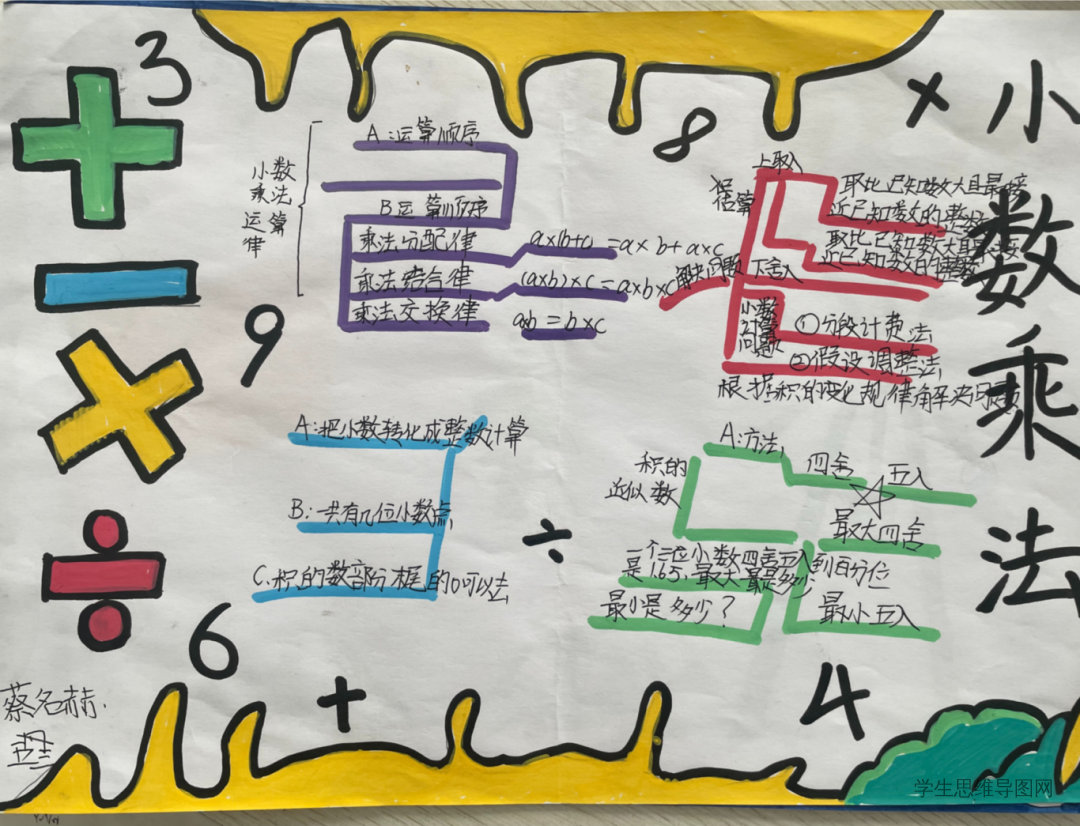 小数乘法
3
×
8
9
÷
6
+
4
小数
乘法
运算
律
A:运算顺序
B运算顺序
乘法分配律
a×(b+c)=a×b+a×c
乘法结合律
(a×b)×c=a×b×c
乘法交换律
a×b=b×c
估算
上取入
取比已知数大且最接
近已知数的整数
取比已知数大且最接
近已知数的整数
解决问题
下舍入
小数
计算
问题
①分段计费法
②假设调整法
根据积的变化规律解决问题
A:把小数转化成整数计算
B:一共有几位小数点
C.积的数部分框的0可以去
积的
近似数
A:方法
四舍
五入
最大四舍
一个三位小数四舍五入到百分位
是1.65,最大是多少
最小是多少?
最小五入
蔡名赫
学生思维导图网